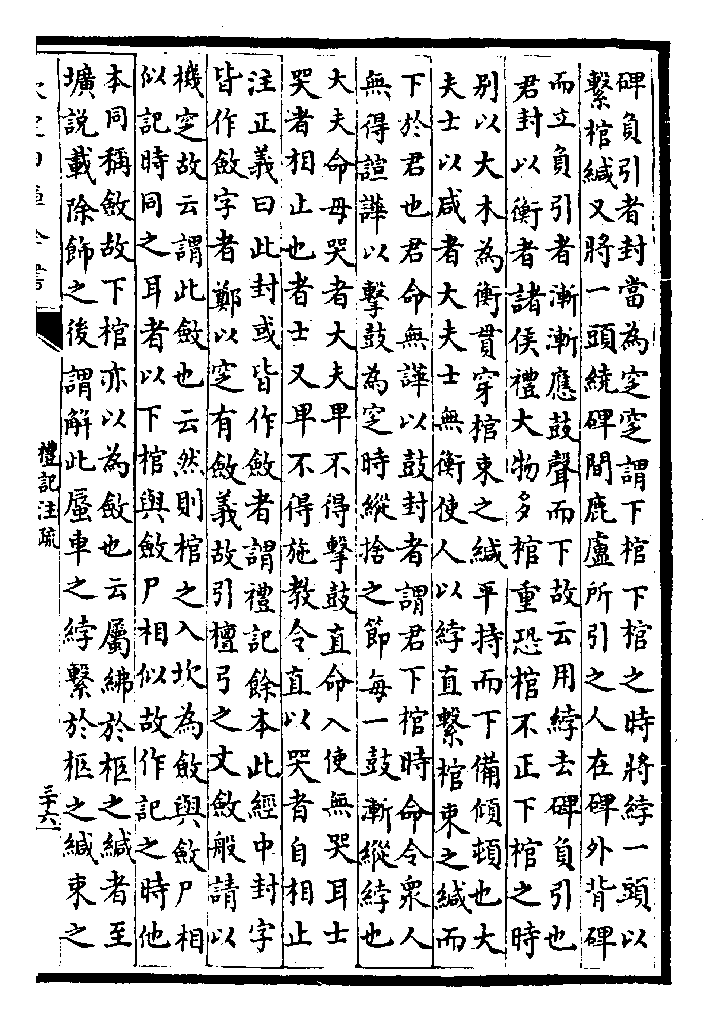 碑負引者封當為窆窆謂下棺下棺之時將綍一頭以
繫棺緘又將一頭繞碑間鹿盧所引之人在碑外背碑
而立負引者漸漸應鼓聲而下故云用綍去碑負引也
君封以衡者諸侯禮大物多棺重恐棺不正下棺之時
别以大木為衡貫穿棺束之緘平持而下備傾頓也大
夫士以咸者大夫士無衡使人以綍直繫棺束之緘而
下於君也君命無譁以鼓封者謂君下棺時命令衆人
無得諠譁以擊鼓為窆時縱捨之節每一鼓漸縱綍也
大夫命毋哭者大夫卑不得擊鼓直命入使無哭耳士
哭者相止也者士又卑不得施教令直以哭者自相止
注正義曰此封或皆作斂者謂禮記餘本此經中封字
皆作斂字者鄭以窆有斂義故引檀弓之文斂般請以
機窆故云謂此斂也云然則棺之入坎為斂與斂尸相
似記時同之耳者以下棺與斂尸相似故作記之時他
本同稱斂故下棺亦以為斂也云屬紼於柩之緘者至
壙說載除飾之後謂解此蜃車之綍繫於柩之緘束之
禮記注疏
三十六